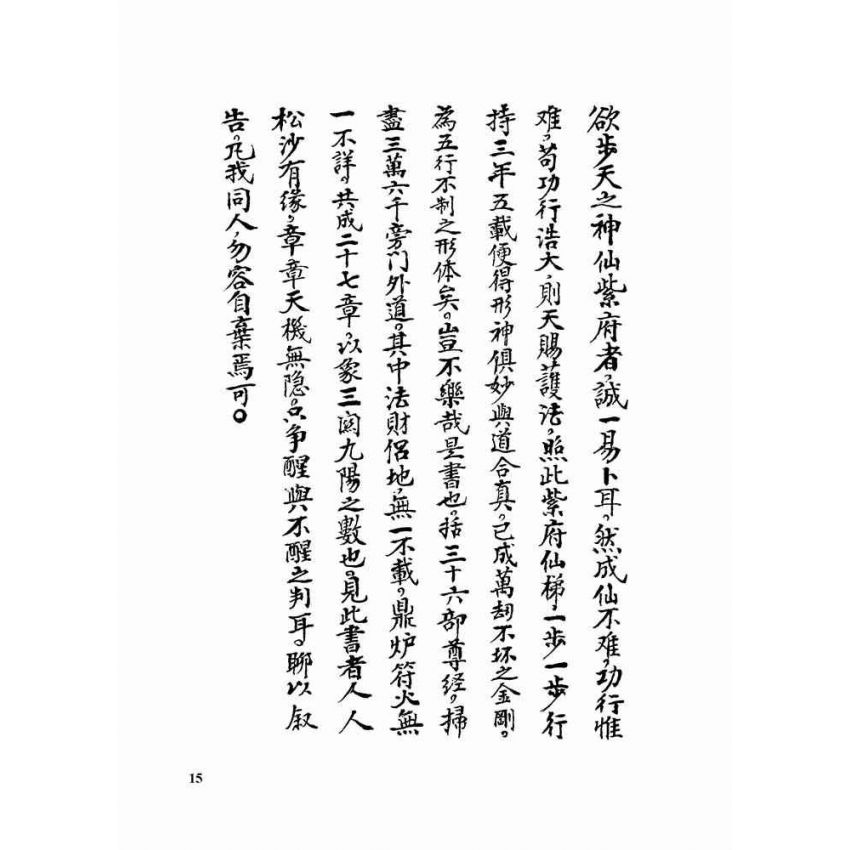 欲步天之神仙紫府者，誠一易卜耳。然成仙不难，功行惟
难，苟功行浩大，則天賜護法。照此紫府仙梯，一步一步行
持三年五載便得形神俱妙與道合真。已成萬刼不坏之金剛。
為五行不制之形体矣。豈不樂哉是書也。括三十六部尊经，掃
盡三萬六千旁门外道。其中法財侶地，無一不載，鼎炉符火無
一不詳。共成二十七章，以象三関九陽之數也。見此書者人人
松沙有缘，章章天機無隐。只争醒與不醒之判耳。聊以叙
告，凡我同人，勿容自棄焉可。
15